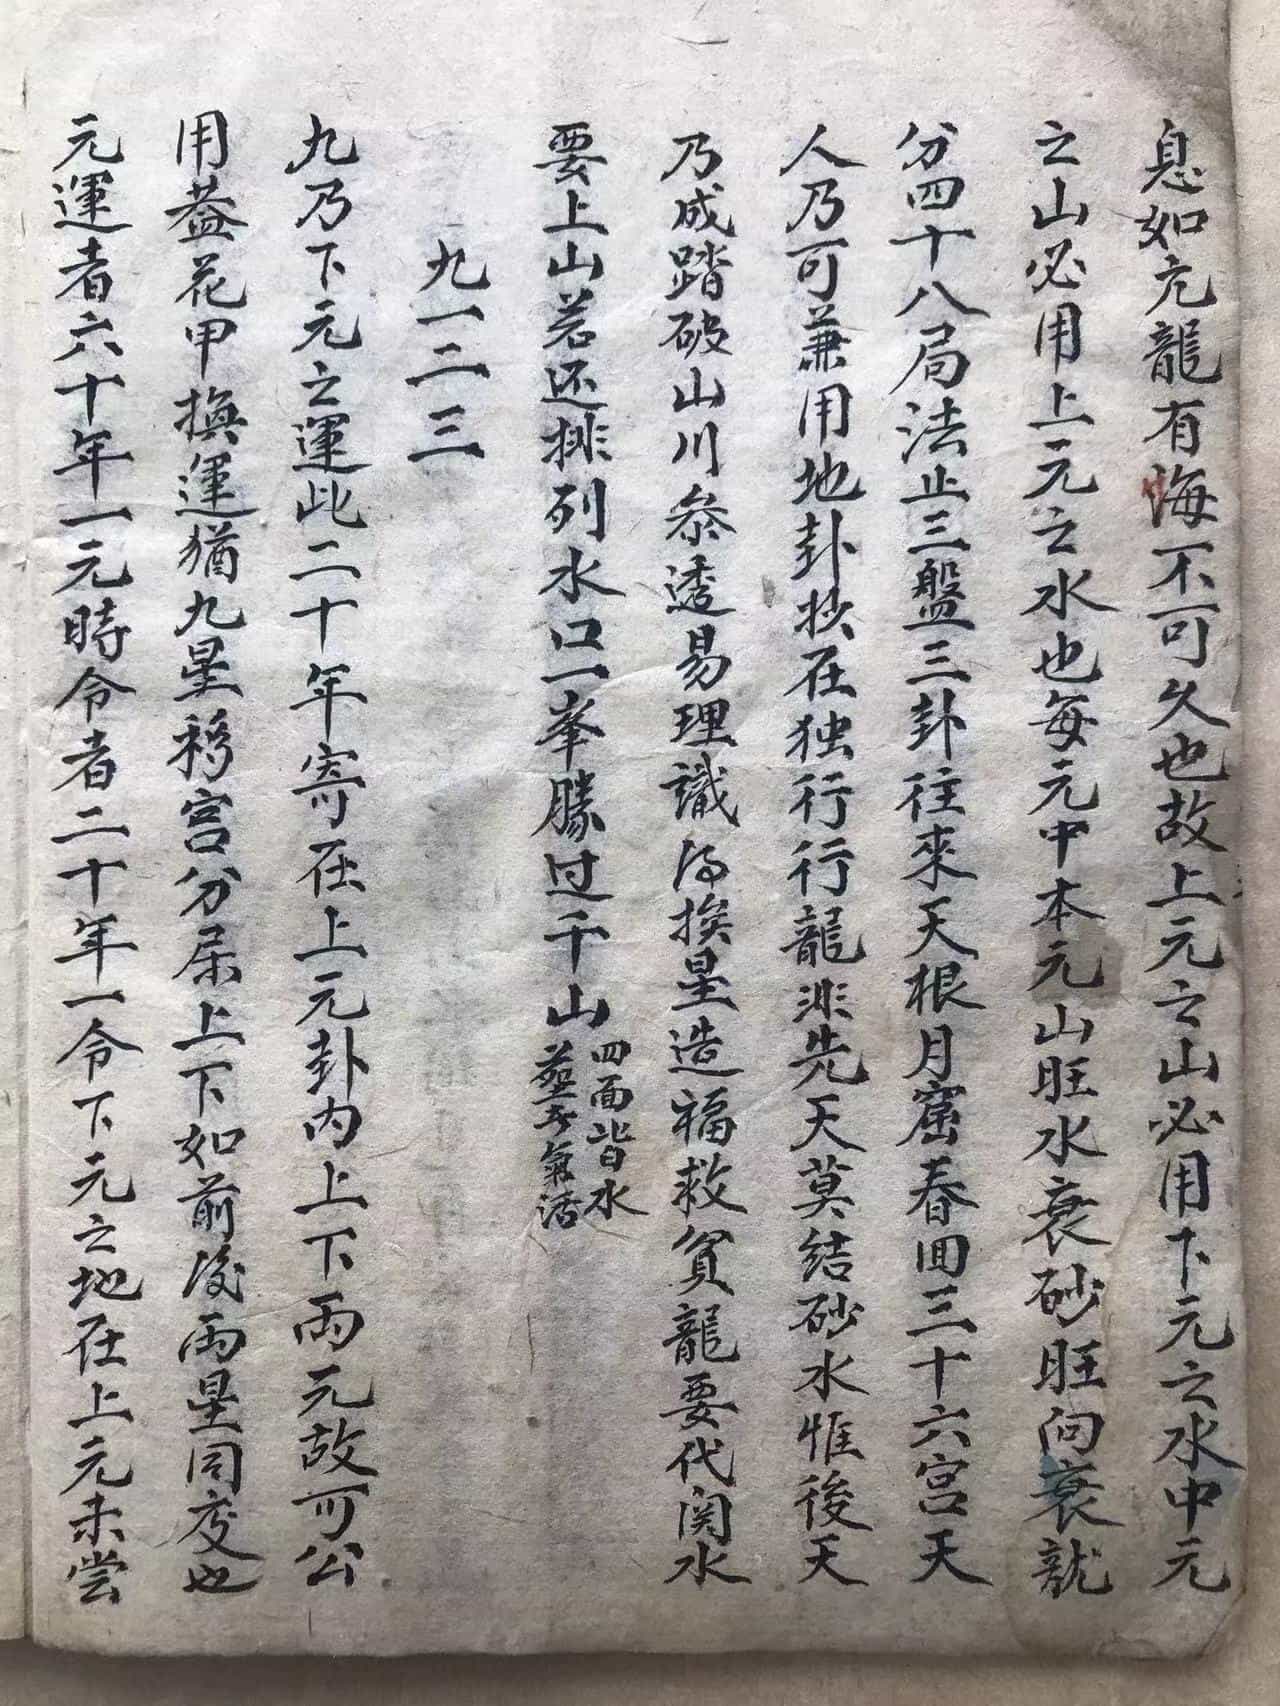 息如亢龍有悔不可久也故上元之山必用下元之水中元
之山必用上元之水也每元中本元山旺水衰砂旺向衰就
分四十八局法止三盤三卦往來天根月窟春回三十六宮天
人乃可兼用地卦挨在独行行龍非先天莫結砂水惟後天
乃成踏破山川叅透易理識得挨星造福救貧龍要代関水
要上山若还排列水口一峯勝过千山
四面皆水
氣活
九一二三
九乃下元之運此二十年寄在上元卦内上下両元故可公
用葢花甲換運猶九星移宮分屬上下如前後両星同度也
元運者六十年一元時令者二十年一令下元之地在上元未嘗